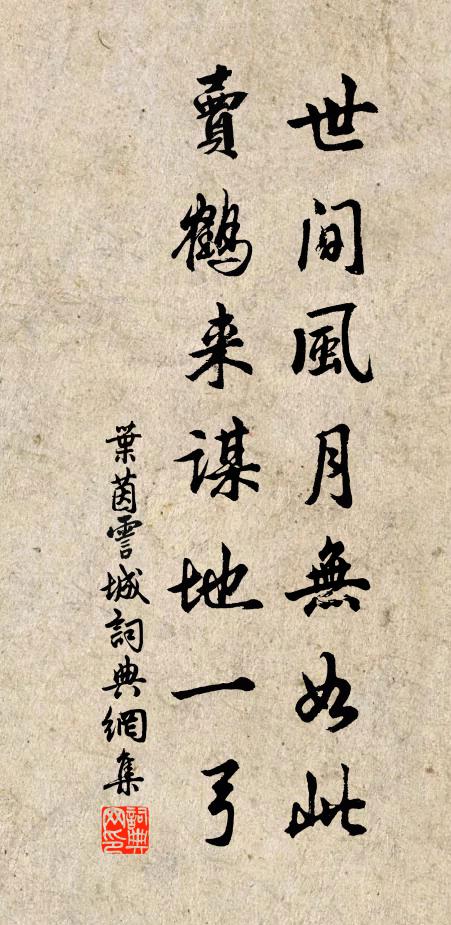 世間風月無如此
賣鶴来謀地一弓
葉茵霅城詞典網集
詞典網印